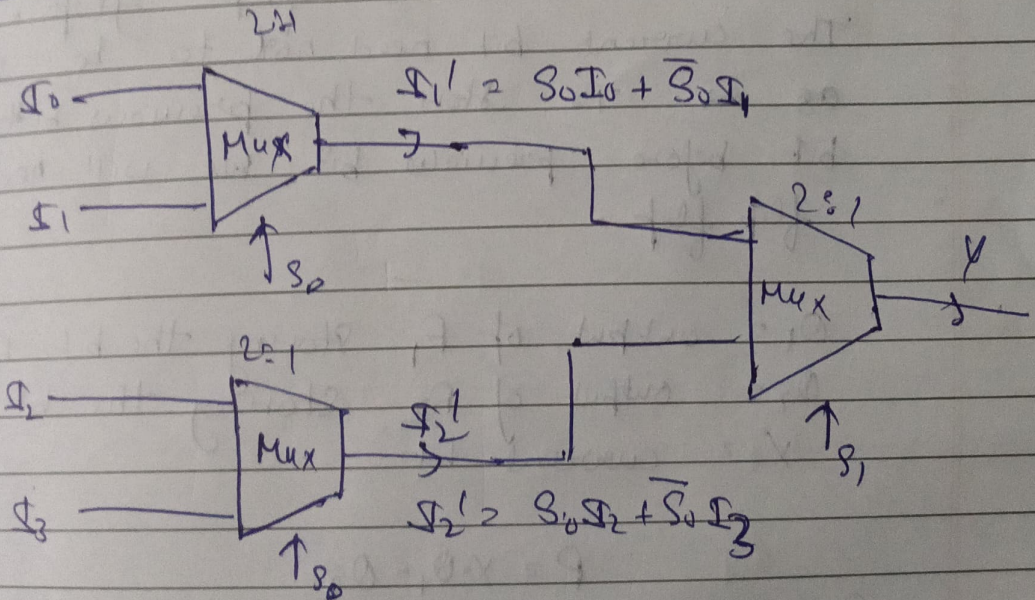 2:1
I0
Mux
I1
S0
I1' = S0I0 + S̅0I1
2:1
Mux
Y
S1
2:1
I2
Mux
I3
S0
I2'
I2' = S0I2 + S̅0I3